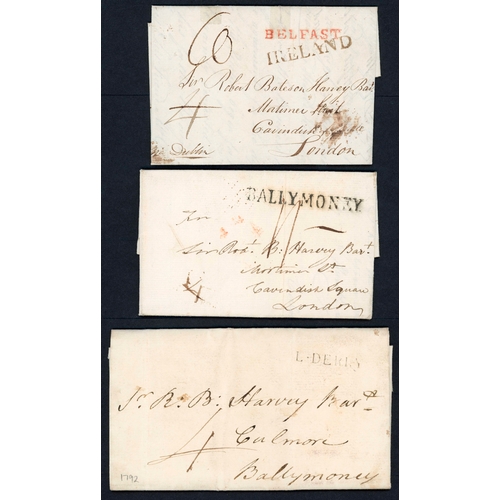 BELFAST
IRELAND
Sir Robert Bateson Harvey Bart.
Mortimer Street
Cavendish Square
London
Dublin
4
BALLYMONEY
For
Sir Robt. B: Harvey Bart.
Mortimer St.
Cavendish Square
London
4
L-DERRY
Sr. R. B: Harvey Bart.
4
Culmore
Ballymoney
1792